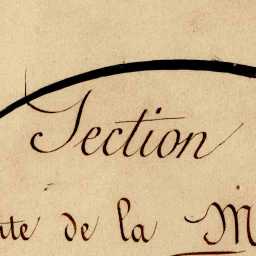 Section
te de la M